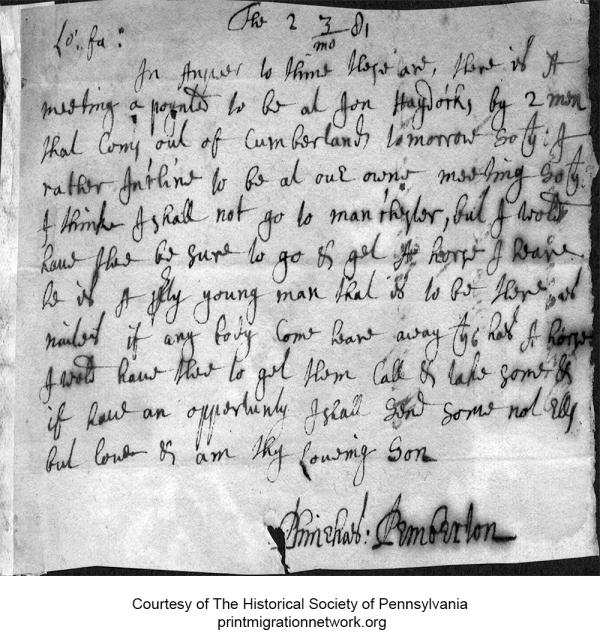 The 2 3/mo 81
Lo: fa:
In Answer to thine these are, there is A
meeting apoynted to be at Jon Haydocks by 2 men
that Coms out of Cumberland tomorrow so yt: I
rather Incline to be at our owne meeting so yt:
I thinke I shall not go to manchester, but I wold
have thee be sure to go & get A horse I heare
he is A young man that is to be there as
nailes if any body Come heare away yt has A horse
I wold have thee to get them Call & take some &
if have an oppertunly I shall Send some not Ells
but love & am thy Loveing Son
Phinehas: Pemberton
Courtesy of The Historical Society of Pennsylvania
printmigrationnetwork.org